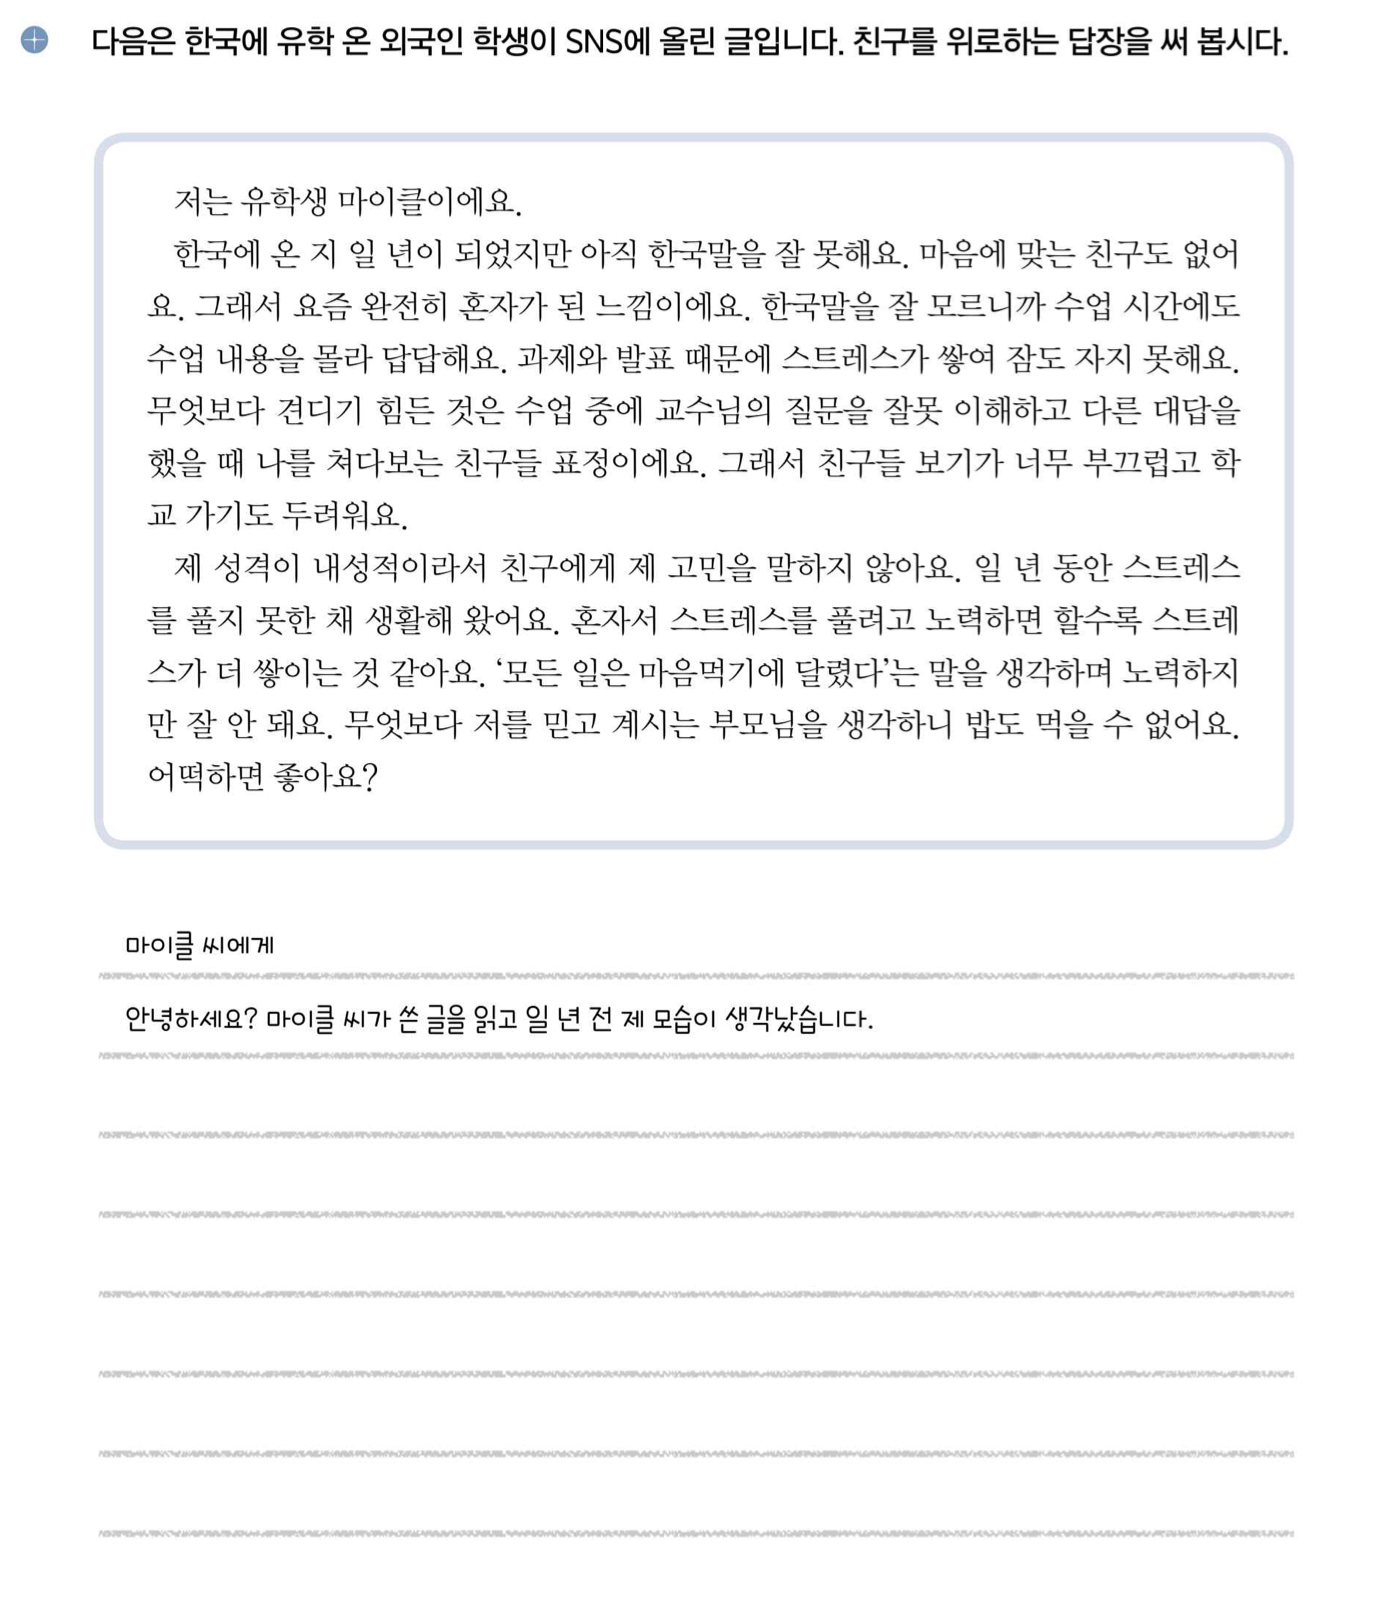 다음은 한국에 유학 온 외국인 학생이 SNS에 올린 글입니다. 친구를 위로하는 답장을 써 봅시다.
저는 유학생 마이클이에요.
한국에 온 지 일 년이 되었지만 아직 한국말을 잘 못해요. 마음에 맞는 친구도 없어
요. 그래서 요즘 완전히 혼자가 된 느낌이에요. 한국말을 잘 모르니까 수업 시간에도
수업 내용을 몰라 답답해요. 과제와 발표 때문에 스트레스가 쌓여 잠도 자지 못해요.
무엇보다 견디기 힘든 것은 수업 중에 교수님의 질문을 잘못 이해하고 다른 대답을
했을 때 나를 쳐다보는 친구들 표정이에요. 그래서 친구들 보기가 너무 부끄럽고 학
교 가기도 두려워요.
제 성격이 내성적이라서 친구에게 제 고민을 말하지 않아요. 일 년 동안 스트레스
를 풀지 못한 채 생활해 왔어요. 혼자서 스트레스를 풀려고 노력하면 할수록 스트레
스가 더 쌓이는 것 같아요. ‘모든 일은 마음먹기에 달렸다’는 말을 생각하며 노력하지
만 잘 안 돼요. 무엇보다 저를 믿고 계시는 부모님을 생각하니 밥도 먹을 수 없어요.
어떡하면 좋아요?
마이클 씨에게
안녕하세요? 마이클 씨가 쓴 글을 읽고 일 년 전 제 모습이 생각났습니다.